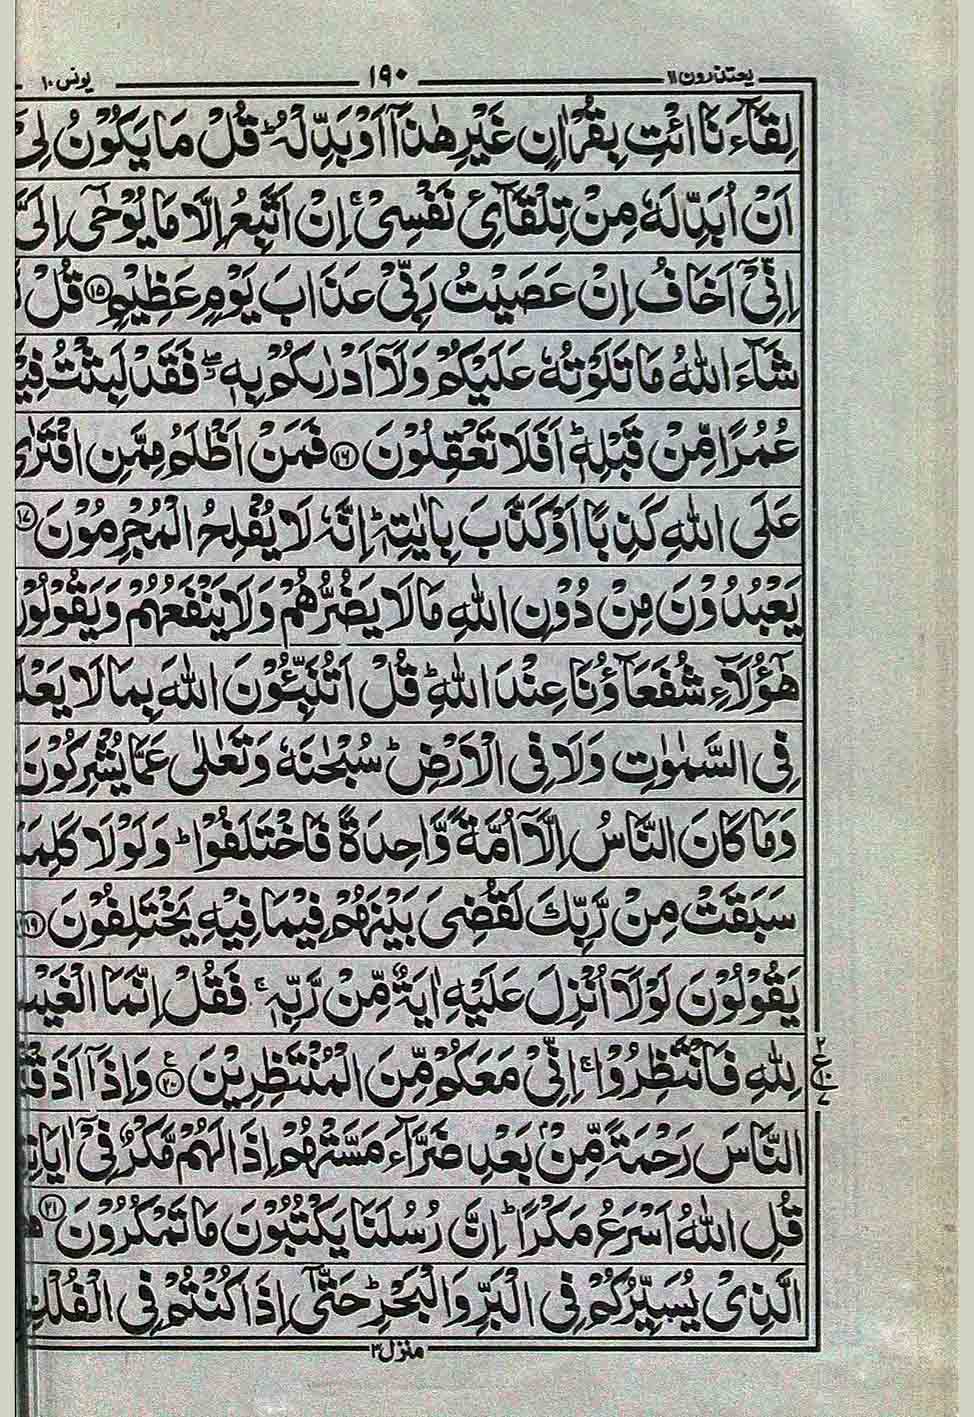 یعتذرون ۱۱ ۱۹۰ یونس ۱۰
لِقَآءَنَا ائْتِ بِقُرْاٰنٍ غَیْرِ هٰذَاۤ اَوْ بَدِّلْهُ ؕ قُلْ مَا یَكُوْنُ لِیْۤ
اَنْ اُبَدِّلَهٗ مِنْ تِلْقَآئِ نَفْسِیْ ۚ اِنْ اَتَّبِعُ اِلَّا مَا یُوْحٰۤی اِلَیَّ
اِنِّیْۤ اَخَافُ اِنْ عَصَیْتُ رَبِّیْ عَذَابَ یَوْمٍ عَظِیْمٍ ۝۱۵ قُلْ
شَآءَ اللّٰهُ مَا تَلَوْتُهٗ عَلَیْكُمْ وَلَاۤ اَدْرٰىكُمْ بِهٖ ۖ فَقَدْ لَبِثْتُ
عُمُرًا مِّنْ قَبْلِهٖ ؕ اَفَلَا تَعْقِلُوْنَ ۝۱۶ فَمَنْ اَظْلَمُ مِمَّنِ افْتَرٰی
عَلَی اللّٰهِ كَذِبًا اَوْ كَذَّبَ بِاٰیٰتِهٖ ؕ اِنَّهٗ لَا یُفْلِحُ الْمُجْرِمُوْنَ ۝۱۷
یَعْبُدُوْنَ مِنْ دُوْنِ اللّٰهِ مَا لَا یَضُرُّهُمْ وَلَا یَنْفَعُهُمْ وَیَقُوْلُوْنَ
هٰۤؤُلَآءِ شُفَعَآؤُنَا عِنْدَ اللّٰهِ ؕ قُلْ اَتُنَبِّئُوْنَ اللّٰهَ بِمَا لَا
فِی السَّمٰوٰتِ وَلَا فِی الْاَرْضِ ؕ سُبْحٰنَهٗ وَتَعٰلٰی عَمَّا یُشْرِكُوْنَ
وَمَا كَانَ النَّاسُ اِلَّاۤ اُمَّةً وَّاحِدَةً فَاخْتَلَفُوْا ؕ وَلَوْلَا
سَبَقَتْ مِنْ رَّبِّكَ لَقُضِیَ بَیْنَهُمْ فِیْمَا فِیْهِ یَخْتَلِفُوْنَ ۝۱۹
یَقُوْلُوْنَ لَوْلَاۤ اُنْزِلَ عَلَیْهِ اٰیَةٌ مِّنْ رَّبِّهٖ ۚ فَقُلْ اِنَّمَا
لِلّٰهِ فَانْتَظِرُوْا ۚ اِنِّیْ مَعَكُمْ مِّنَ الْمُنْتَظِرِیْنَ ۝۲۰ وَاِذَاۤ
النَّاسَ رَحْمَةً مِّنْۢ بَعْدِ ضَرَّآءَ مَسَّتْهُمْ اِذَا لَهُمْ مَّكْرٌ فِیْۤ
قُلِ اللّٰهُ اَسْرَعُ مَكْرًا ؕ اِنَّ رُسُلَنَا یَكْتُبُوْنَ مَا تَمْكُرُوْنَ ۝۲۱
الَّذِیْ یُسَیِّرُكُمْ فِی الْبَرِّ وَالْبَحْرِ ؕ حَتّٰۤی اِذَا كُنْتُمْ فِی الْفُلْكِ
منزل ۳